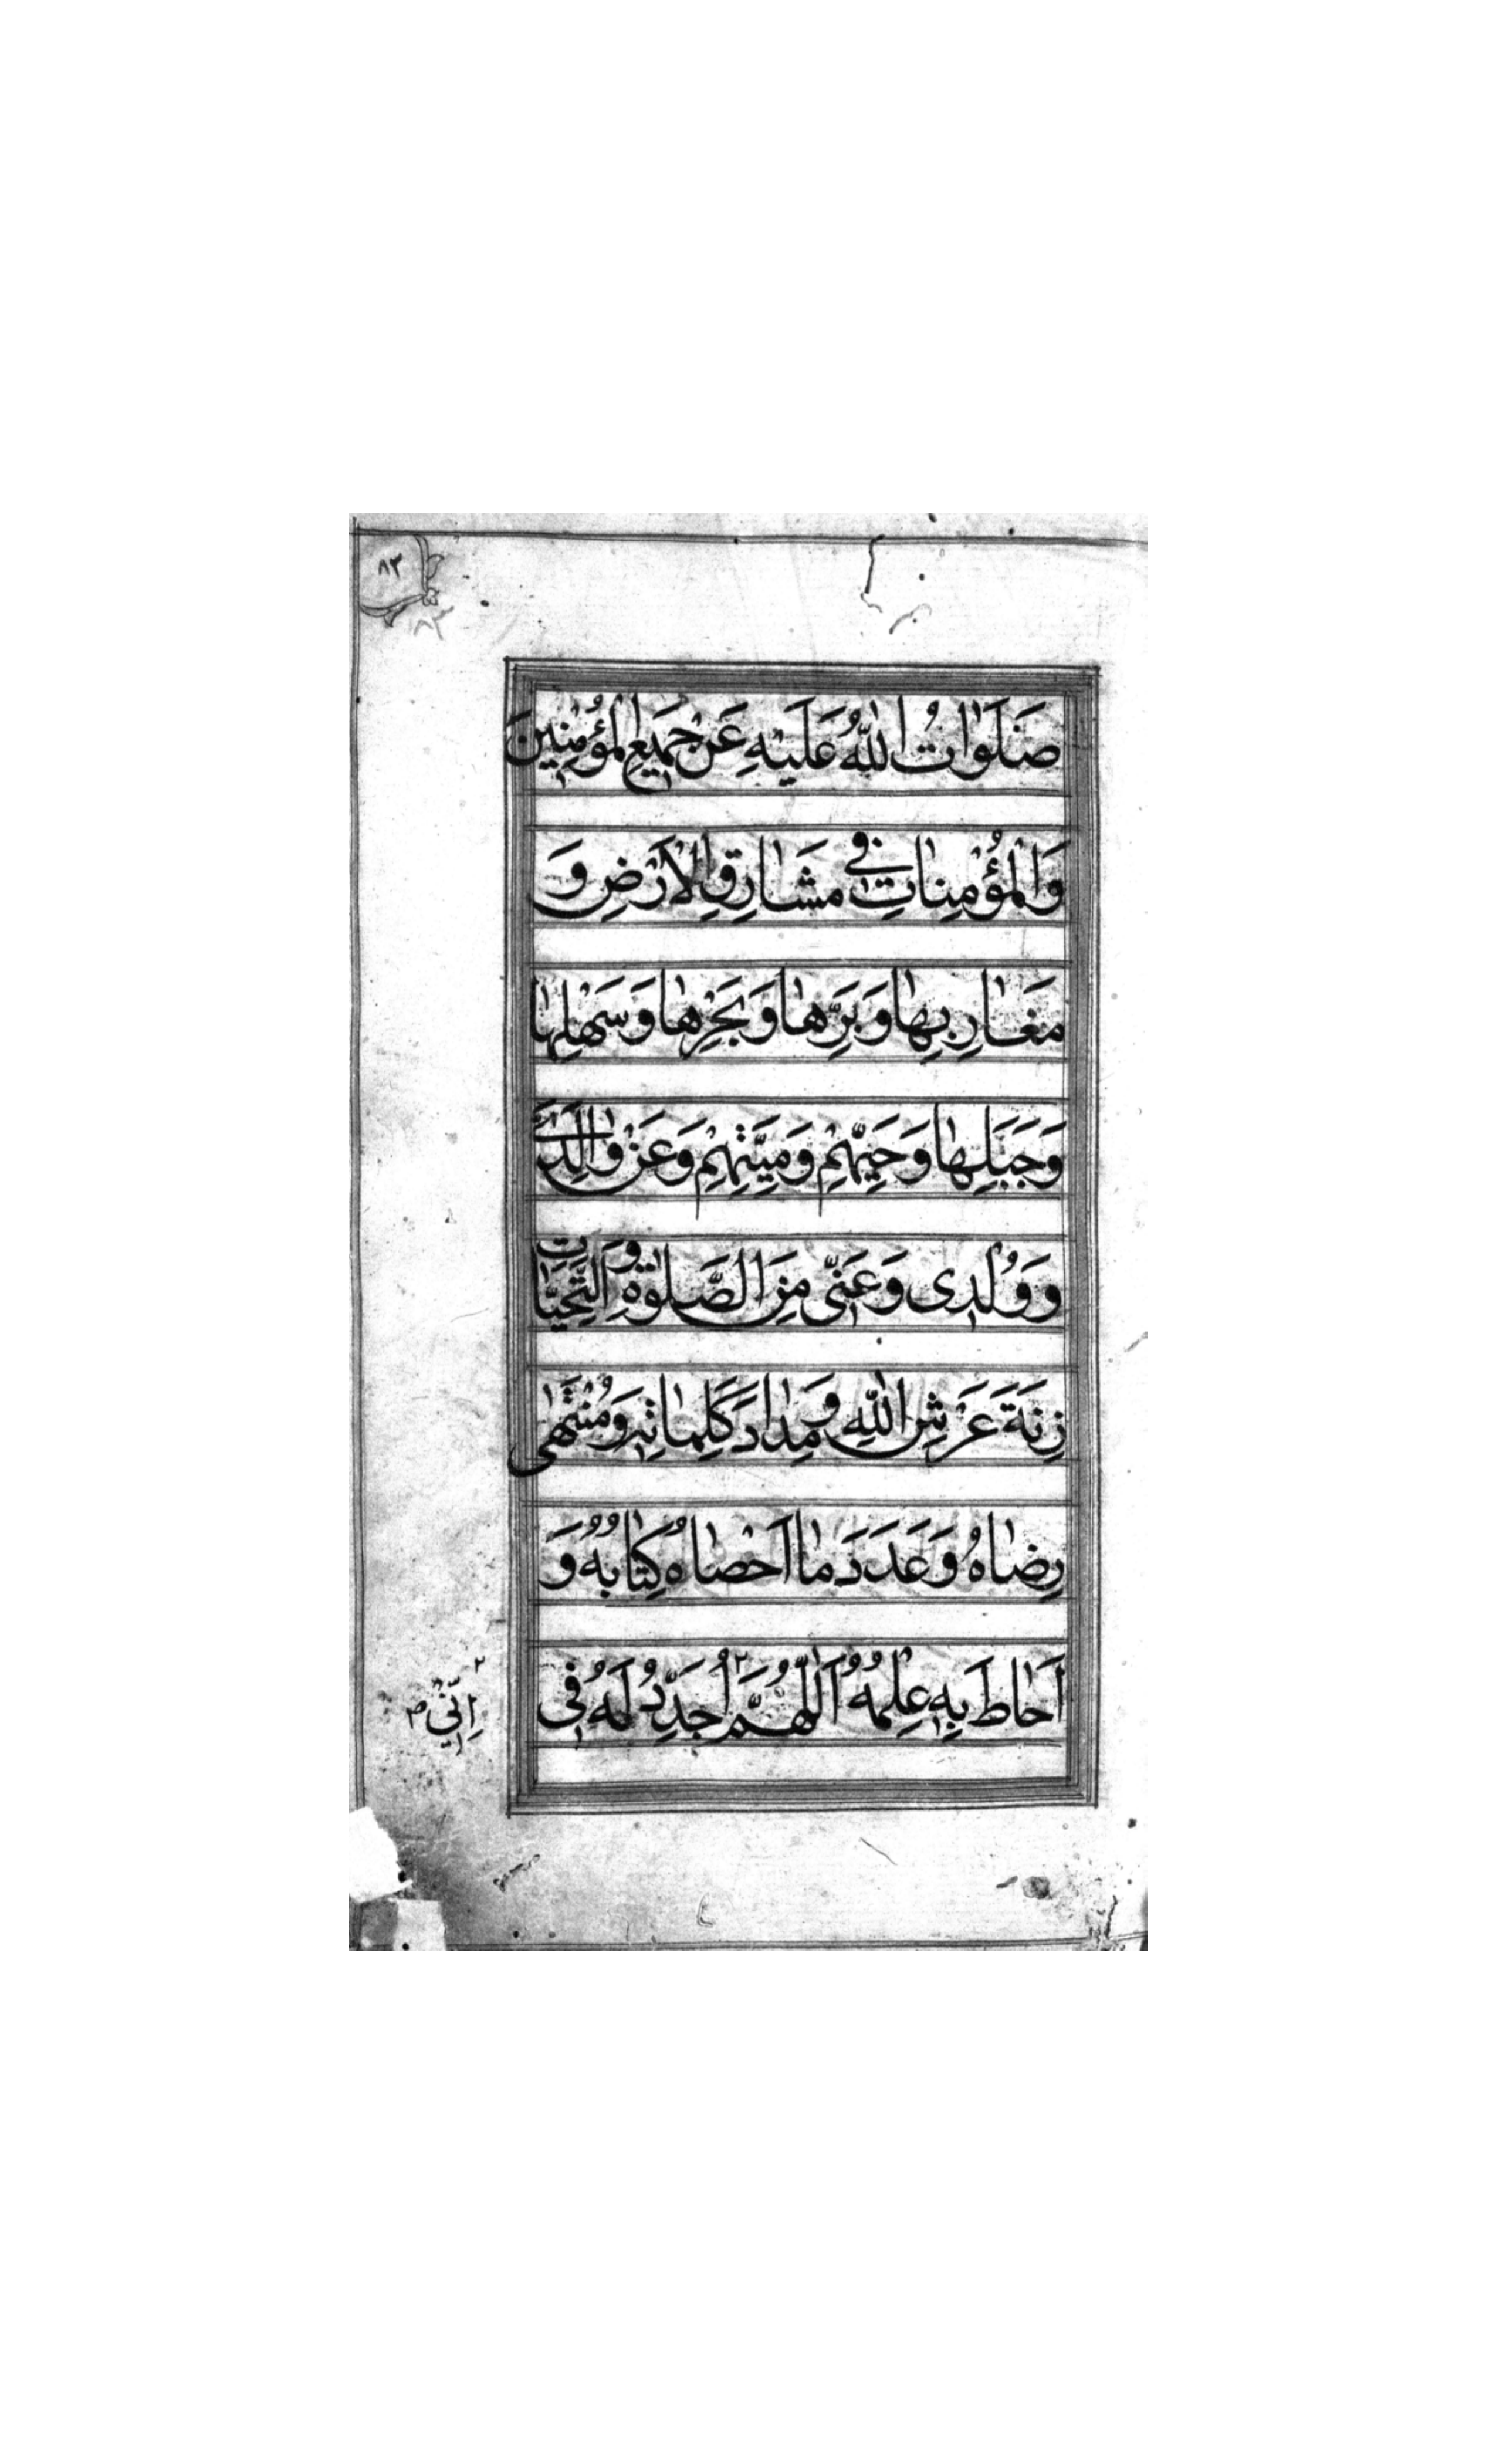 ٨٣
صَلَوَاتُ اللهِ عَلَيْهِ عَنْ جَمِيعِ الْمُؤْمِنِينَ
وَالْمُؤْمِنَاتِ فِي مَشَارِقِ الْاَرْضِ وَ
مَغَارِبِهَا وَبَرِّهَا وَبَحْرِهَا وَسَهْلِهَا
وَجَبَلِهَا وَحَيِّهِمْ وَمَيِّتِهِمْ وَعَنْ وَالِدَيَّ
وَوُلْدِى وَعَنِّى مِنَ الصَّلَوٰةِ وَالتَّحِيَّاتِ
زِنَةَ عَرْشِ اللهِ وَمِدَادَ كَلِمَاتِهِ وَمُنْتَهٰى
رِضَاهُ وَعَدَدَ مَا اَحْصَاهُ كِتَابُهُ وَ
اَحَاطَ بِهِ عِلْمُهُ اَللّٰهُمَّ ٢ اُجَدِّدُ لَهُ فِى
٢ اِنِّي